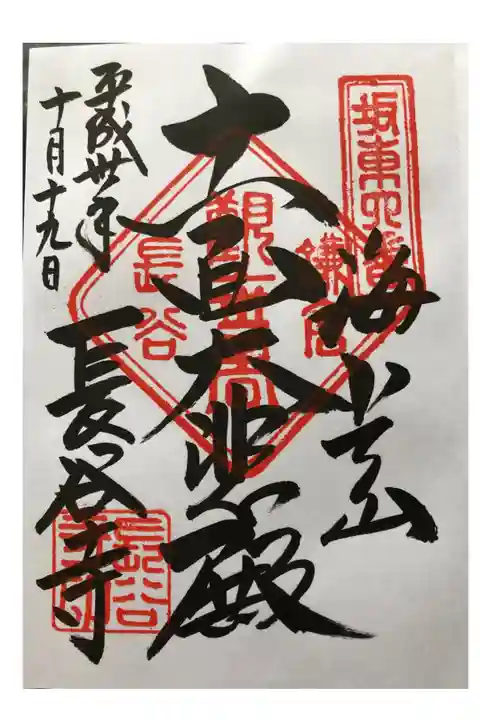 坂東四番
海光山
鎌倉
十一面大悲殿
觀世音
長谷
平成卅年
十月十九日
長谷寺
長谷